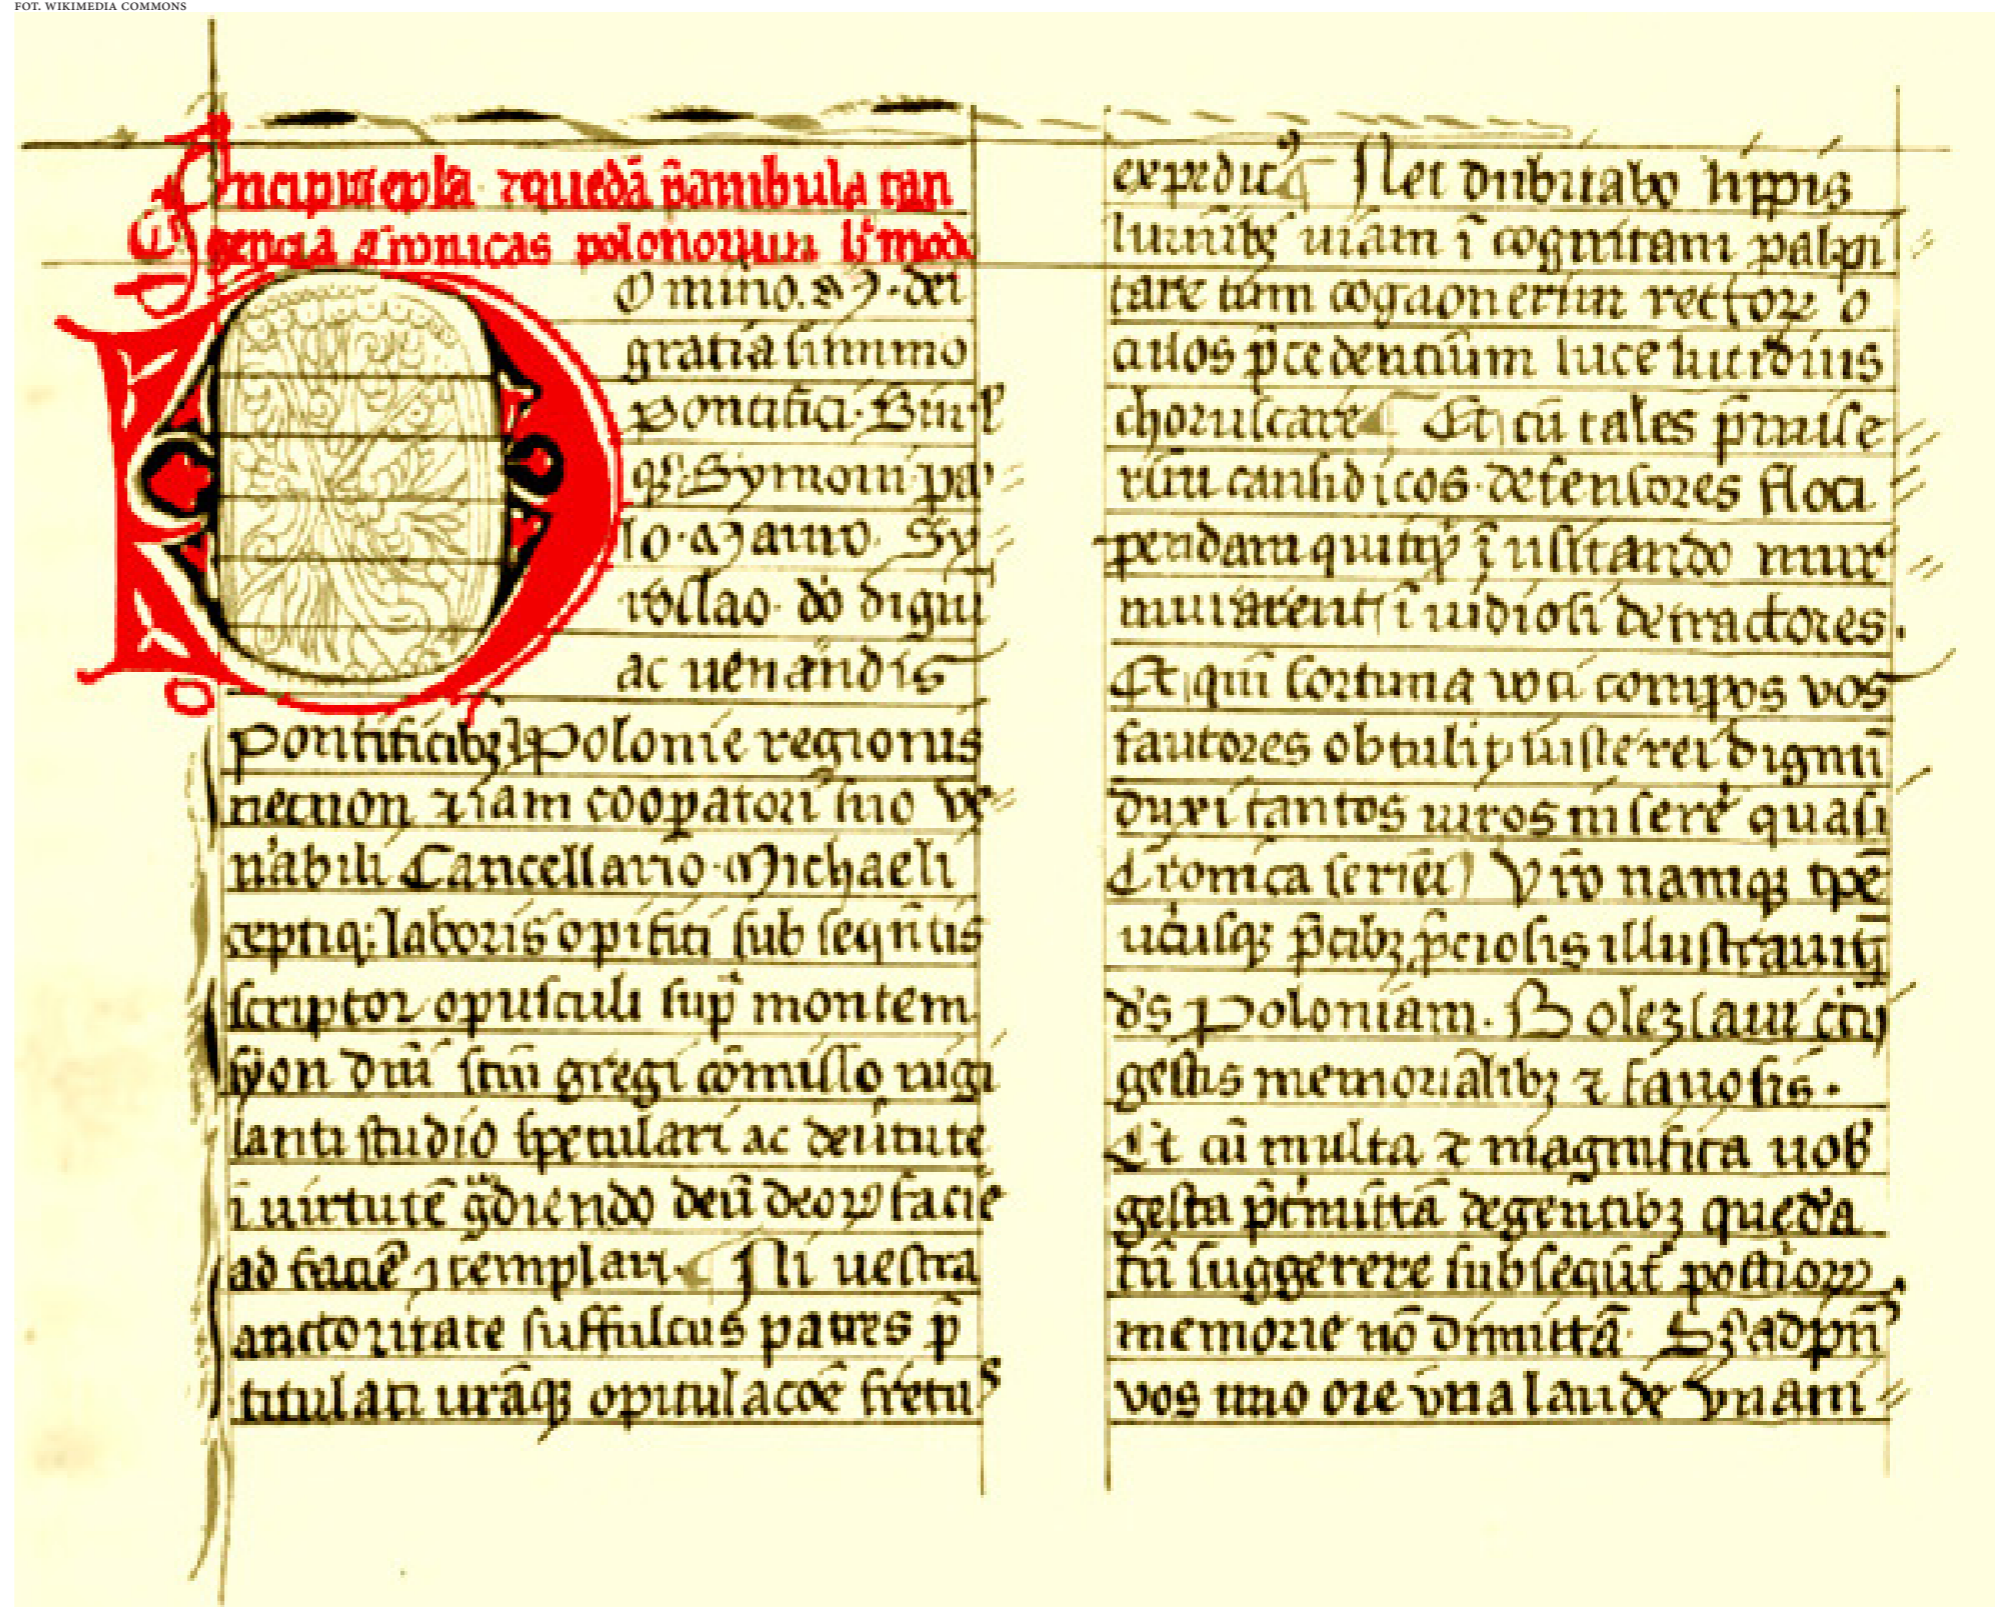 FOT. WIKIMEDIA COMMONS
Incipit epl̄a ⁊ quedā p̄ambula tan
gencia Cronicas polonorum
Domino. M. dei
gratia summo
pontifici. Sim̄l
q3 Symoni. pa
lo. Mauro. Sy
roslao. dō digni
ac uen̄andis
pontificib3 Polonie regionis
necnon ⁊iam coop̄atori suo ve
n̄abili Cancellario. Michaeli
ceptiq3 laboris opifici subseqn̄tis
scriptor opusculi sup̄ montem
syon dn̄i scm̄ gregi cōmisso uigi
lanti studio speculari ac deuirtute
ī uirtutē g̃diendo deū deoꝝ faciē
ad faciē ꝯtemplari. Ni uestra
auctoritate suffulcus patres p̄
titulati ur̄aq3 opitulacōe fretus
lumīb3 uiam īcognitam palpi
tare tam cogacionerim rectoꝝ o
culos p̄cedencium luce lucidius
choruscare Et cū tales p̄mise
rim causidicos. defensores floci
pendam quitq̄d īusitando mur
murarent īuidiosi detractores.
Et quī fortuna uoti compos vos
fautores obtulit iuste rei dignū
duxi tantos uiros inserer̄ quasi
Cronica seriei Vr̄o namq3 tp̄e
ur̄isq3 p̄cib3 p̄ciosis illustrauit
d̄s Poloniam. Bolezlaui t̄cii
gestis memorialib3 ⁊ famosis.
Et cū multa ⁊ magnifica uob̄
gesta p̄t̄mittā degentib3 quedā
tn̄ suggerere subsequēt̄ postioꝝ
memorie nō dimittā. S3 ad pn̄s
vos uno ore vna laude vnani